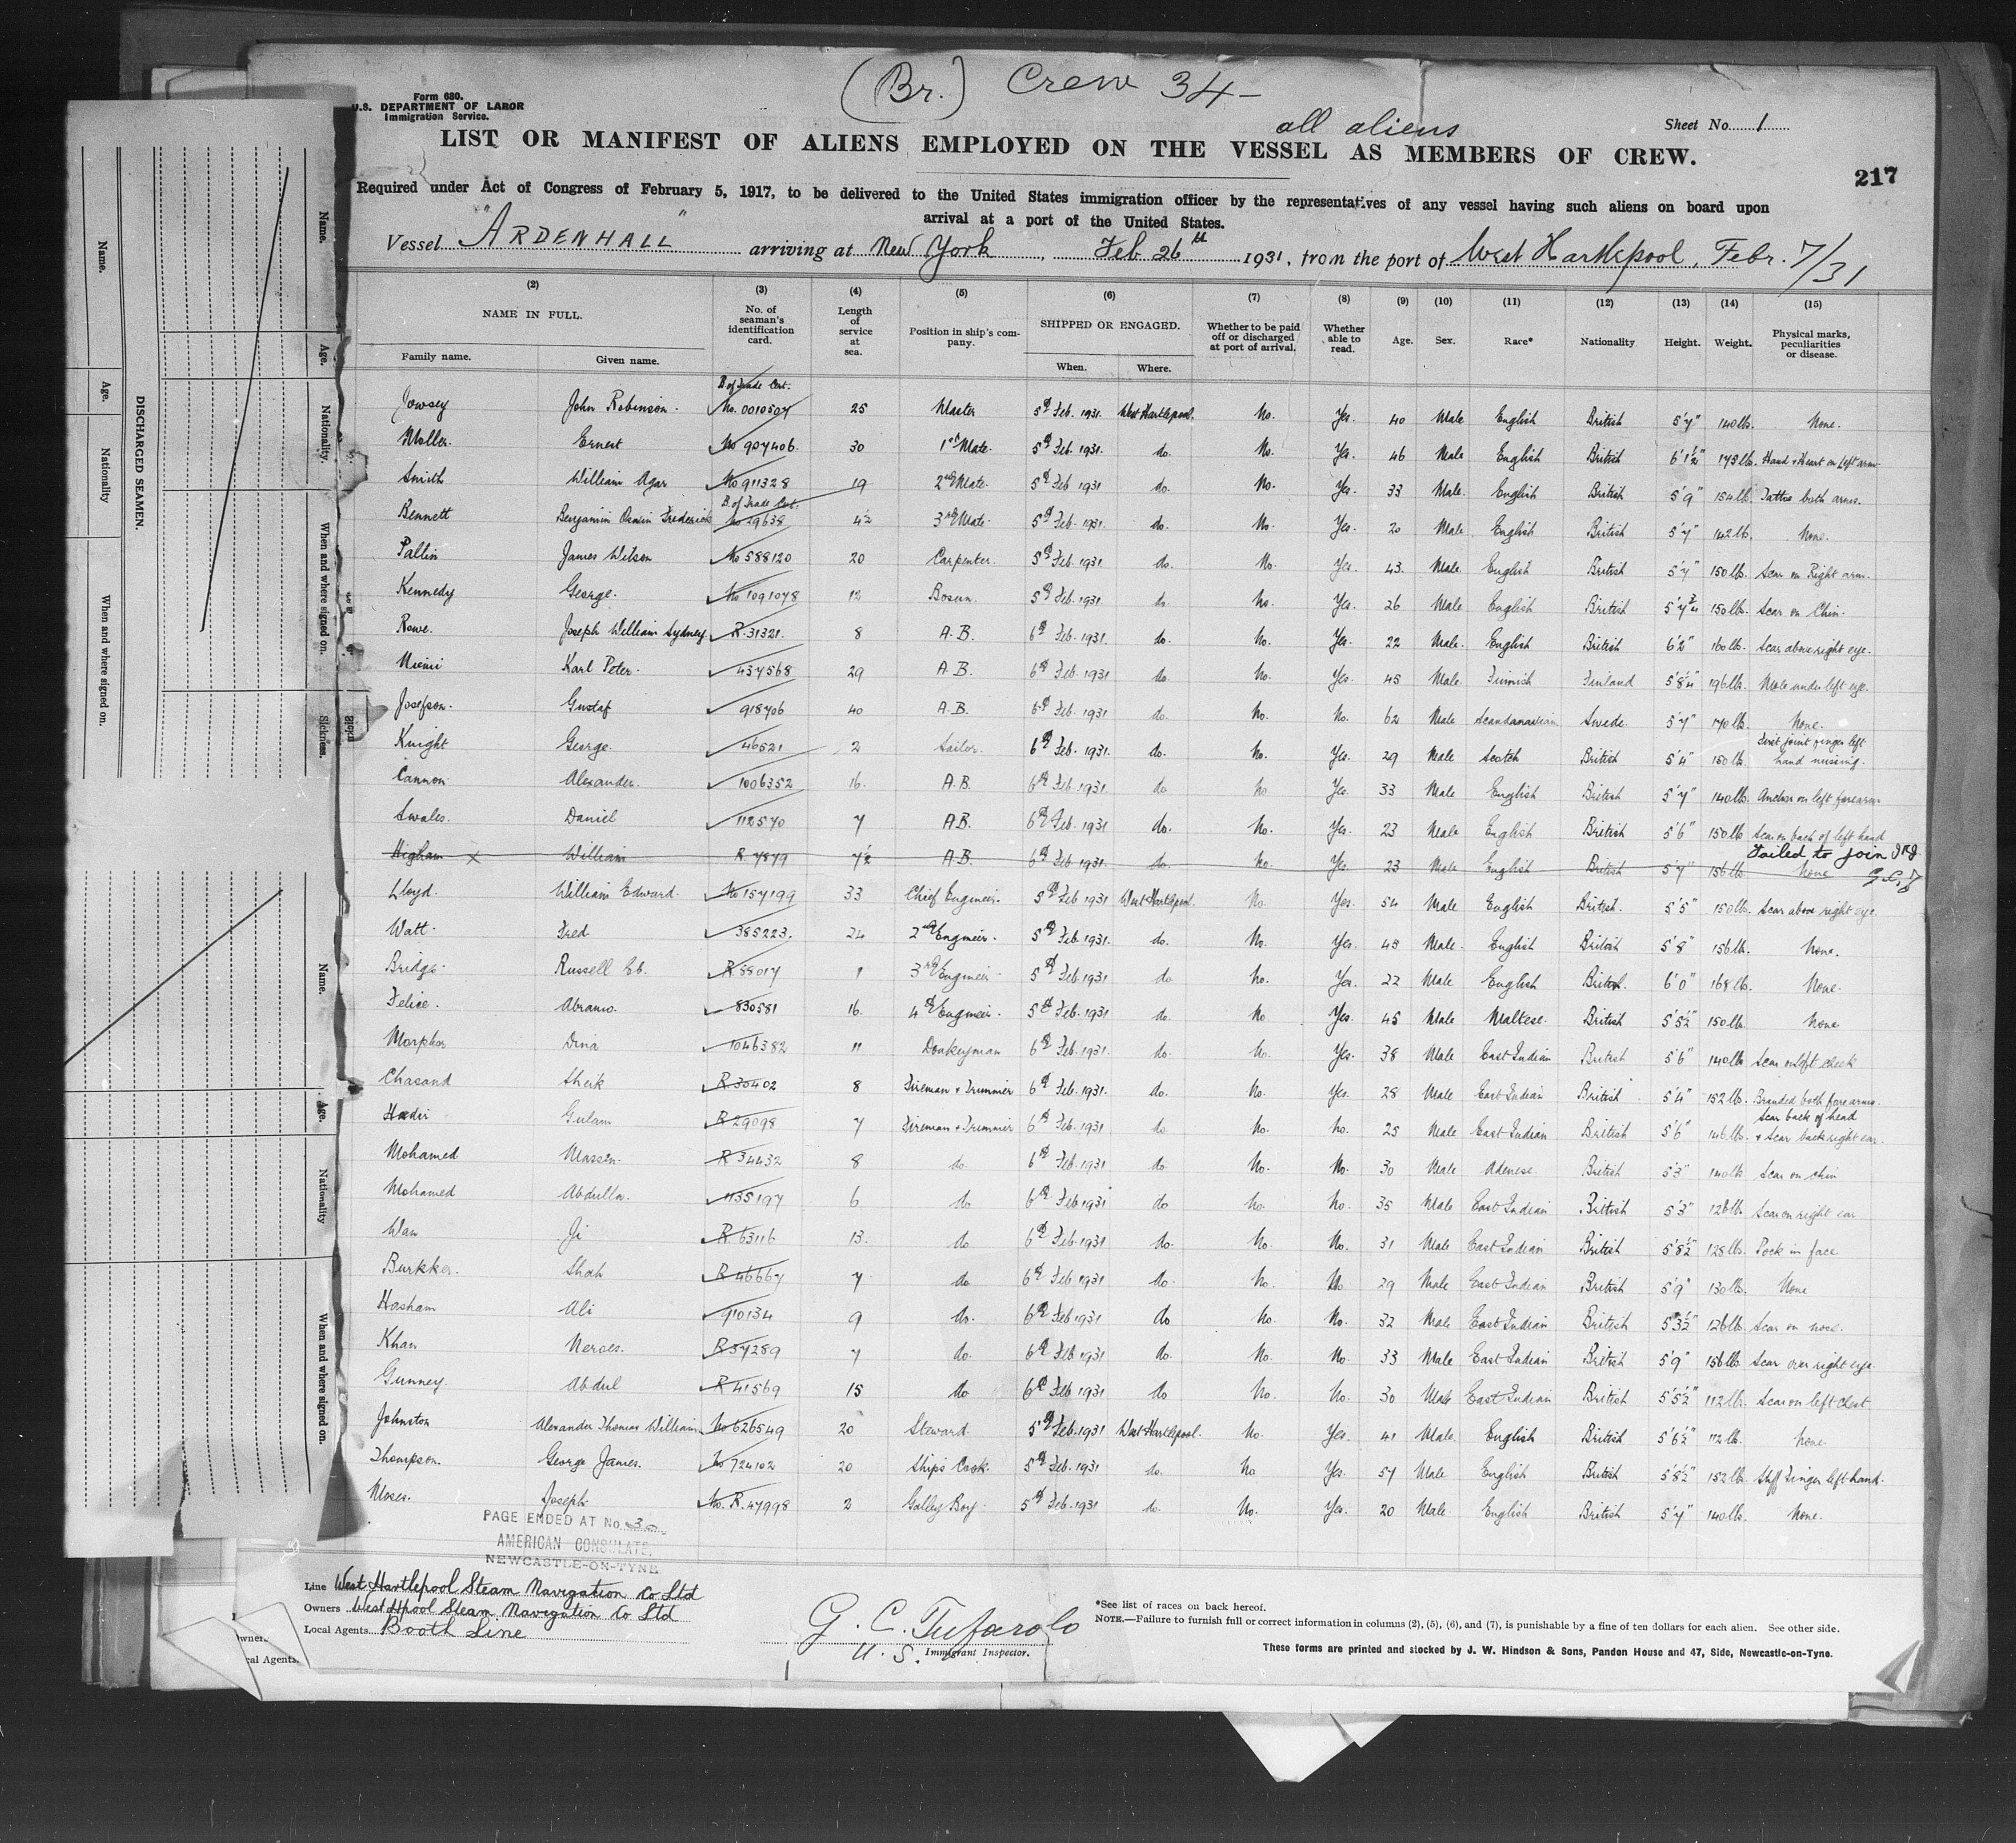 (Br.) Crew 34-
all aliens
Form 680.
U.S. DEPARTMENT OF LABOR
Immigration Service.
Sheet No. 1
LIST OR MANIFEST OF ALIENS EMPLOYED ON THE VESSEL AS MEMBERS OF CREW.
217
Required under Act of Congress of February 5, 1917, to be delivered to the United States immigration officer by the representatives of any vessel having such aliens on board upon
arrival at a port of the United States.
Vessel "ARDENHALL" arriving at New York, Feb 26th 1931, from the port of West Hartlepool, Febr. 7/31
(2) (3) (4) (5) (6) (7) (8) (9) (10) (11) (12) (13) (14) (15)
NAME IN FULL. Family name. Given name. No. of seaman's identification card. Length of service at sea. Position in ship's company. SHIPPED OR ENGAGED. When. Where. Whether to be paid off or discharged at port of arrival. Whether able to read. Age. Sex. Race* Nationality Height. Weight. Physical marks, peculiarities or disease.
B of Trade Cert:
Jowsey John Robinson. No. 0010507 25 Master 5th Feb. 1931. West Hartlepool. No. Yes. 40 Male English British 5'7" 140 lb. None.
Moller. Ernest No 907406. 30 1st Mate. 5th Feb. 1931. do. No. Yes. 46 Male English British 6'1½" Hand & Heart on left arm
Smith William Agar No 911328 19 2nd Mate. 5th Feb 1931 do. No. Yes. 33 Male. English British 5'9" 154 lb. Tattoo both arms.
B. of Trade Cert:
Bennett Benjamin Frederick No 29638 4½ 3rd Mate. 5th Feb. 1931. do. No. Yes. 20 Male English British 5'7" 142 lb. None.
Pallin James Wilson No 588120 20 Carpenter. 5th Feb. 1931. do. No. Yes. 43. Male English British 5'7" 150 lb. Scar on Right arm.
Kennedy George. No 1091078 12 Bosun. 5th Feb. 1931 do. No. Yes. 26 Male English British 5'7¾ 150 lb. Scar on Chin.
Rowe. Joseph William Sydney. R.31321. 8 A.B. 6th Feb. 1931. do. No. Yes. 22 Male. English British 6'2" 160 lb. Scar above right eye.
Niemi Karl Peter. 437568 29 A.B. 6th Feb. 1931 do. No. Yes. 45 Male Finnish Finland 196 lb. Mole under left eye.
Josefson. Gustaf 918706 40 A.B. 6th Feb. 1931 do. No. No. 62 Male Scandanavian Swede. 5'7" 170 lb. None.
Knight George. 46521 2 Sailor. 6th Feb. 1931. do. No. Yes. 29 Male Scotch British 5'4" 150 lb. First joint finger left hand missing.
Cannon Alexander. 1006352 16. A.B. 6th Feb. 1931. do No. Yes. 33 Male English British 5'7" 140 lb. Anchor on left forearm
Swales. Daniel 112570 7 A.B. 6th Feb. 1931 do. No. Yes. 23 Male English British 5'6" 150 lb Scar on back of left hand
Failed to join
Higham X William R. 7879 7½ A.B. 6th Feb. 1931. do No. Yes. 23 Male English British 5'7 156 lb. None
Lloyd. William Edward. No 157199 33 Chief Engineer. 5th Feb 1931 West Hartlepool. No. Yes. 54 Male English British. 5'5" 150 lb. Scar above right eye.
Watt. Fred. 385223. 24 2nd Engineer. 5th Feb. 1931. do. No. Yes. 45 Male. English British 5'8" 156 lb. None.
Bridge. Russell R 55017 1 3rd Engineer 5th Feb. 1931 do No. Yes. 22 Male English British. 6'0" 168 lb. None.
Felice. Abramo. 830581 16. 4th Engineer. 5th Feb. 1931 do. No Yes. 45 Male Maltese. British 5'5½" 150 lb None
Morpher Dina 1046382 11 Donkeyman 6th Feb. 1931. do. No. Yes. 38 Male East Indian British 5'6" 140 lb Scar on left cheek
Chasand Sheik R 30402 8 Fireman & Trimmer 6th Feb. 1931. do. No. Yes. 28 Male East Indian British 5'4" 152 lb. Branded both forearms.
Hadir Gulam R 29098 7 Fireman & Trimmer 6th Feb. 1931 do No. No. 25 Male East Indian British 5'6" 146 lb. Scar back of head & Scar back right ear.
Mohamed R 34432 8 do. 6th Feb. 1931 do. No. No. 30 Male Adenese. British 5'3" 140 lb Scar on chin
Mohamed Abdulla. 1135197 6 do 6th Feb 1931 do No. No. 35 Male East Indian British 5'3" 126 lb Scar on right ear
Wan Ji R 63116 13. do 6th Feb. 1931 do. No No. 31 Male East Indian British 5'8½" 128 lb. Pock in face
Burkker. Shah R 46667 7 do 6th Feb 1931 do. No. No 29 Male East Indian British 5'9" 130 lb. None
Hasham Ali 910134 9 do. 6th Feb 1931 do No. No. 32 Male East Indian British 5'3½" 126 lb. Scar on nose.
Khan Neroes. R 37289 7 do. 6th Feb 1931 do. No. No. 33 Male East Indian British 5'9" 156 lb. Scar over right eye
Gunney. Abdul R 41569 15 do 6th Feb. 1931 do No. No. 30 Male East Indian British 5'5½" 112 lb. Scar on left chest
Johnston Alexander Thomas William No 626549 20 Steward. 5th Feb. 1931 West Hartlepool. No. Yes. 41 Male. English British 5'6½" 112 lb. None.
Thompson. George James. No 724102 20 Ships Cook. 5th Feb. 1931 do. No Yes. 57 Male English British 5'5½" 152 lb. Stiff Finger left hand.
Moses. Joseph. No. R. 47998 2 Galley Boy. 5th Feb. 1931 do. No. Yes. 20 Male English British 5'7" 140 lb. None.
PAGE ENDED AT No. 30
AMERICAN CONSULATE,
NEWCASTLE-ON-TYNE
Line West Hartlepool Steam Navigation Co Ltd
Owners West Hpool Steam Navigation Co Ltd
Local Agents Booth Line
G. C. Tufarolo
U. S. Immigrant Inspector.
*See list of races on back hereof.
NOTE.—Failure to furnish full or correct information in columns (2), (5), (6), and (7), is punishable by a fine of ten dollars for each alien. See other side.
These forms are printed and stocked by J. W. Hindson & Sons, Pandon House and 47, Side, Newcastle-on-Tyne.
DISCHARGED SEAMEN.
Name.
Age.
Nationality
When and where signed on.
Name.
Age.
Nationality
When and where signed on.
Sickness.
Name.
Age.
Nationality
When and where signed on.
Owners
cal Agents.